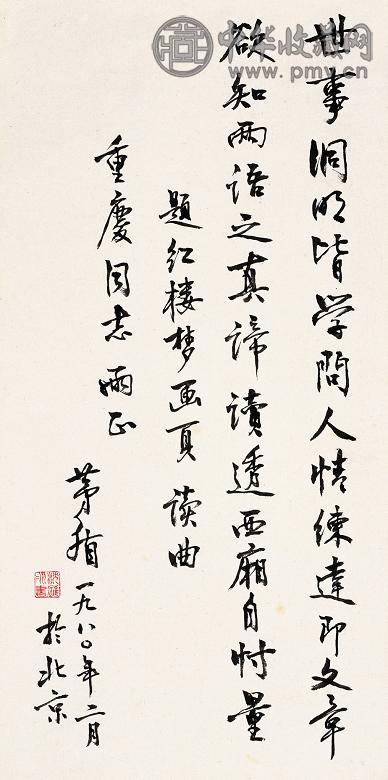 中华收藏网
世事洞明皆学問人情練達即文章
欲知兩语之真諦讀透西廂自忖量
题红楼梦画頁 读曲
重慶同志哂正
茅盾 一九八〇年二月
於北京